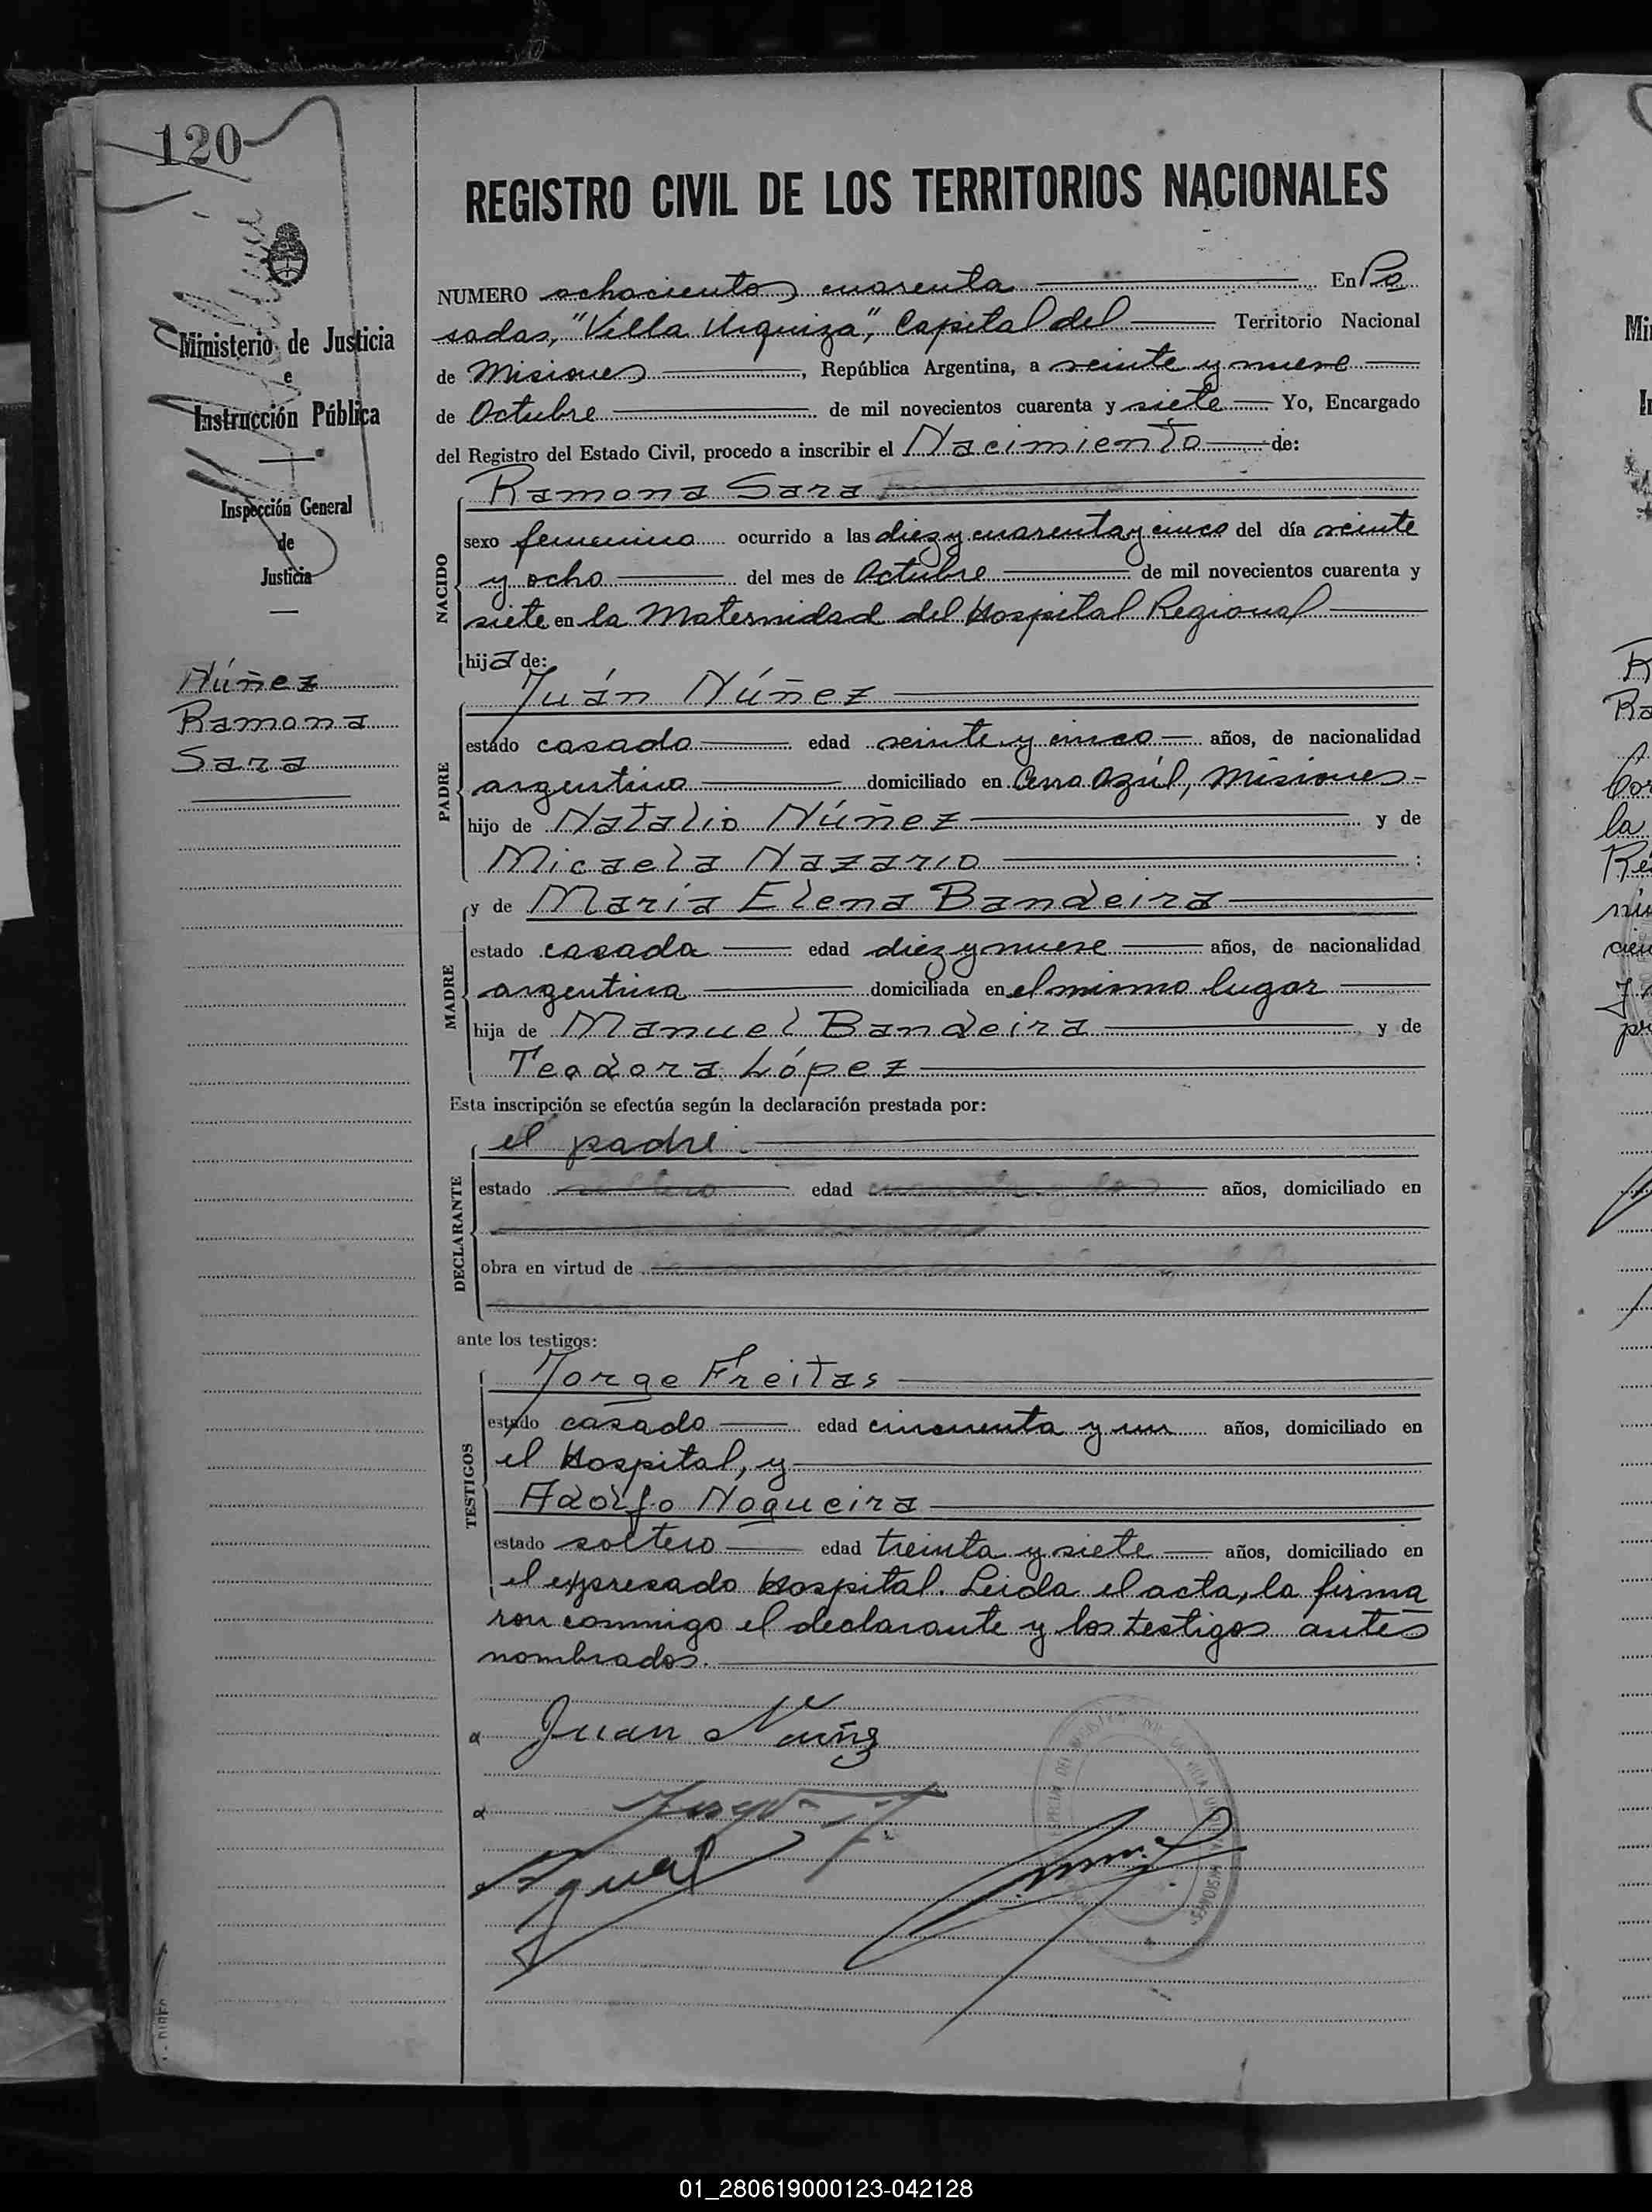 120
REGISTRO CIVIL DE LOS TERRITORIOS NACIONALES
Ministerio de Justicia
e
Instrucción Pública
Inspección General
de
Justicia
Núñez
Ramona
Sara
NUMERO ochocientos cuarenta En Po
sadas, "Villa Urquiza", Capital del Territorio Nacional
de Misiones, República Argentina, a veinte y nueve
de Octubre de mil novecientos cuarenta y siete Yo, Encargado
del Registro del Estado Civil, procedo a inscribir el Nacimiento de:
NACIDO
Ramona Sara
sexo femenino ocurrido a las diez y cuarenta y cinco del día veinte
y ocho del mes de Octubre de mil novecientos cuarenta y
siete en la Maternidad del Hospital Regional
hija de:
PADRE
Juán Núñez
estado casado edad veinte y cinco años, de nacionalidad
argentino domiciliado en Cerro Azúl, Misiones
hijo de Natalio Núñez y de
Micaela Nazario :
MADRE
y de María Elena Bandeira
estado casada edad diez y nueve años, de nacionalidad
argentina domiciliada en el mismo lugar
hija de Manuel Bandeira y de
Teodora López
Esta inscripción se efectúa según la declaración prestada por:
DECLARANTE
el padre
estado edad años, domiciliado en
obra en virtud de
ante los testigos:
TESTIGOS
Jorge Freitas
estado casado edad cincuenta y un años, domiciliado en
el Hospital, y
Adolfo Nogueira
estado soltero edad treinta y siete años, domiciliado en
el expresado Hospital. Leida el acta, la firma
ron conmigo el declarante y los testigos antes
nombrados.
Juan Nuñez
01_280619000123-042128